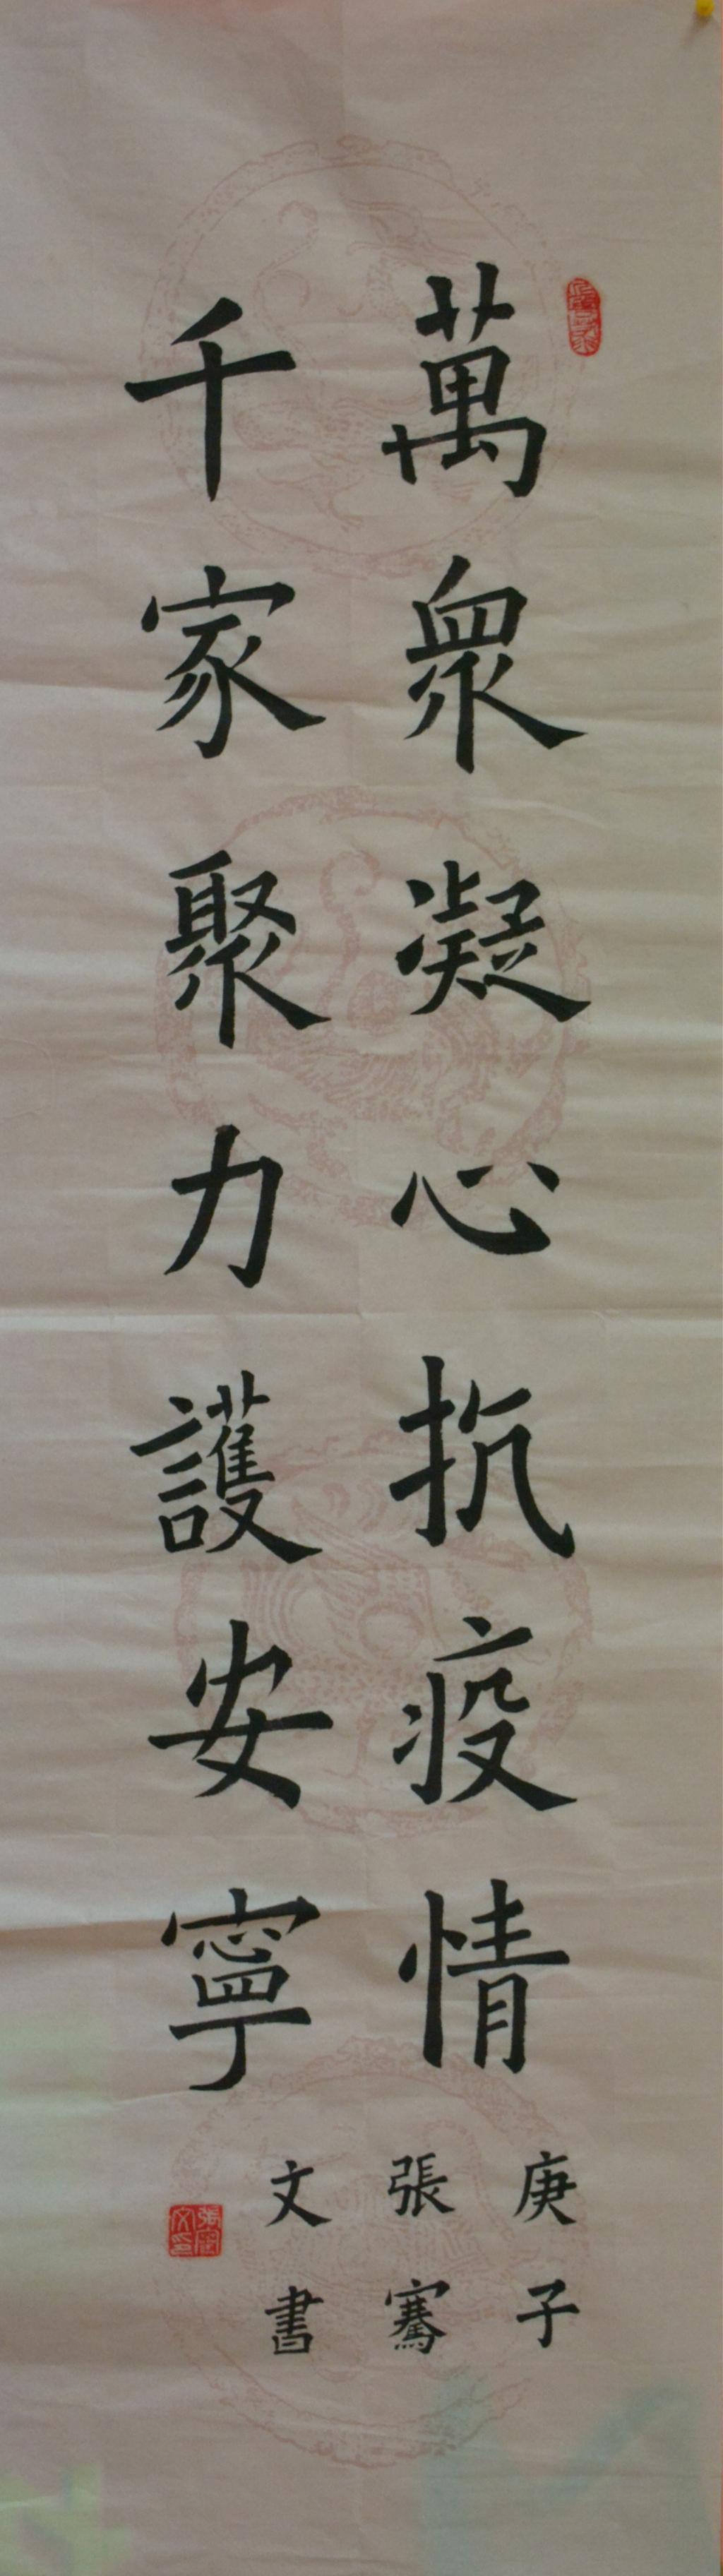 萬衆凝心抗疫情
千家聚力護安寧
庚子
張騫
文書